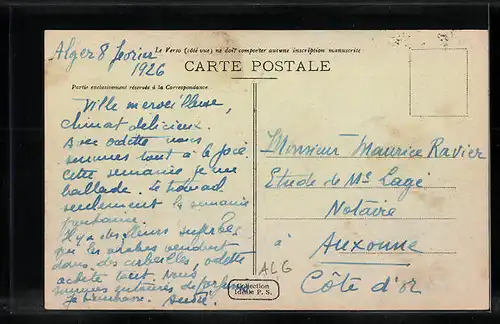 Le Verso (côté vue) ne doit comporter aucune inscription manuscrite
CARTE POSTALE
Partie exclusivement réservée à la Correspondance.
Alger 8 fevrier
1926
Ville merveilleuse,
climat délicieux.
Avec odette nous
sommes tout à la joie
cette semaine je me
ballade. Le travail
seulement la semaine
prochaine.
Il y a des fleurs superbes
que les arabes vendent
dans des corbeilles, odette
achète tout. Nous
sommes entourés de parfums
je t'embrasse. André.
Monsieur Maurice Ravier
Etude de Me Lagé
Notaire
à
Auxonne
Côte d'or
ALG
Collection
Idéale P. S.